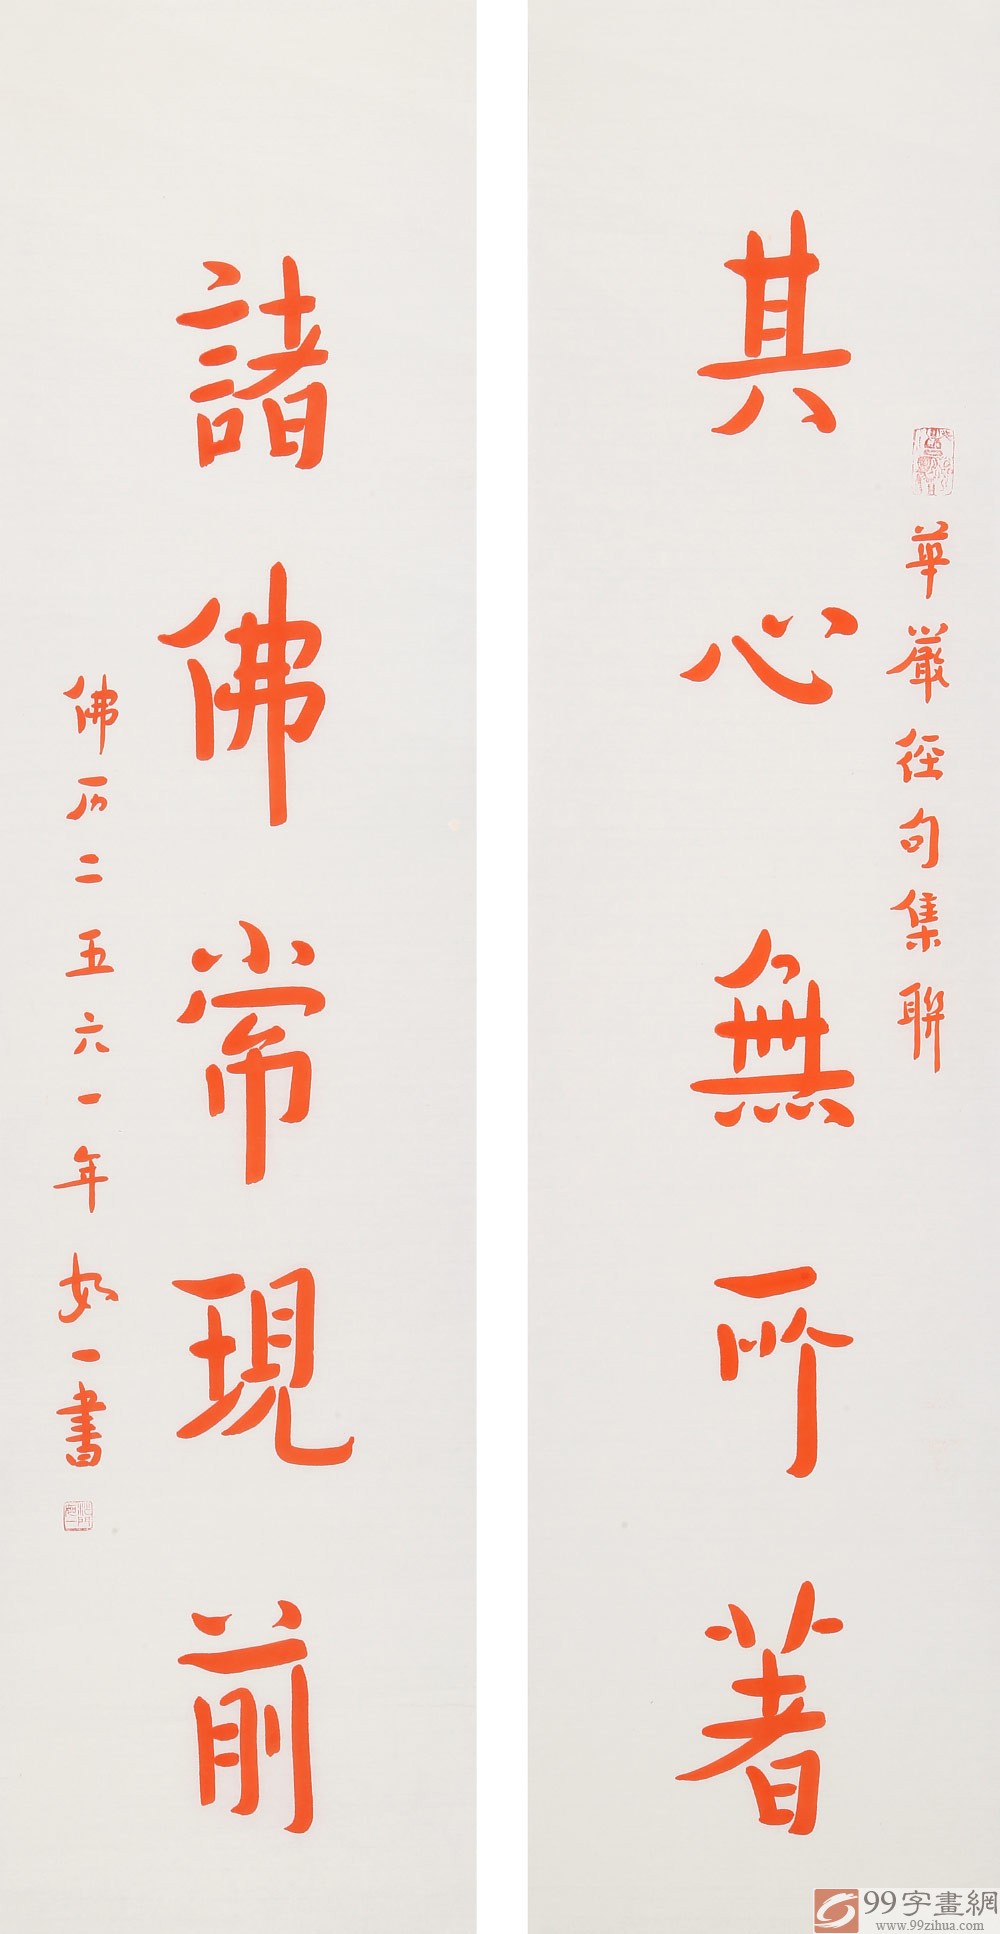 華嚴經句集聯
其心無所著
諸佛常現前
佛历二五六一年如一書
99字畫網
www.99zihua.com